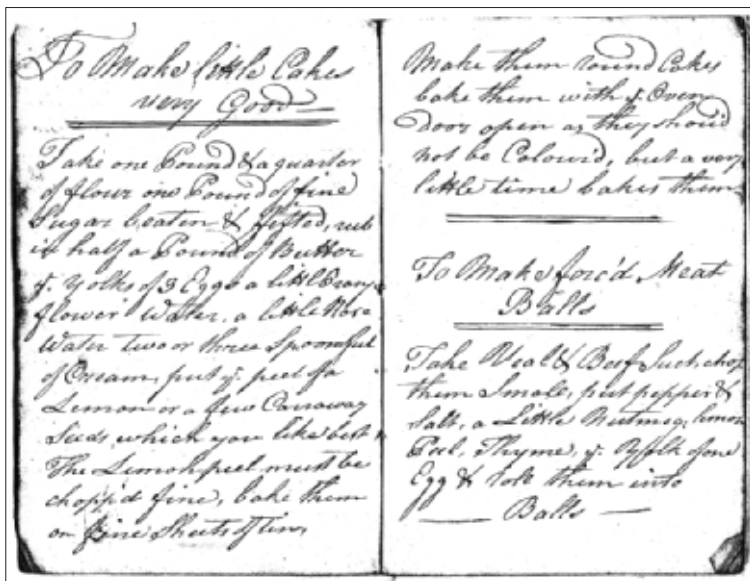 To Make little Cakes
very Good
Take one Pound & a quarter
of flour one Pound of fine
Sugar beaten & sifted, rub
in half a Pound of Butter
ye. Yolks of 3 Eggs a little Orange
flower Water, a little Rose
Water two or three Spoonfuls
of Cream, put ye. peel of a
Lemon or a few Carraway
Seeds, which you like best
The Lemon peel must be
chopp'd fine, bake them
on fine Sheets of tin,
Make them round Cakes
bake them with ye. Oven
Door open as they shou'd
not be Colour'd, but a very
little time bakes them
To Make forc'd Meat
Balls
Take Veal & Beef Suet, chop
them Small, put pepper &
Salt, a Little Nutmeg, lemon
Peel, Thyme, ye. Yolk of one
Egg & role them into
Balls